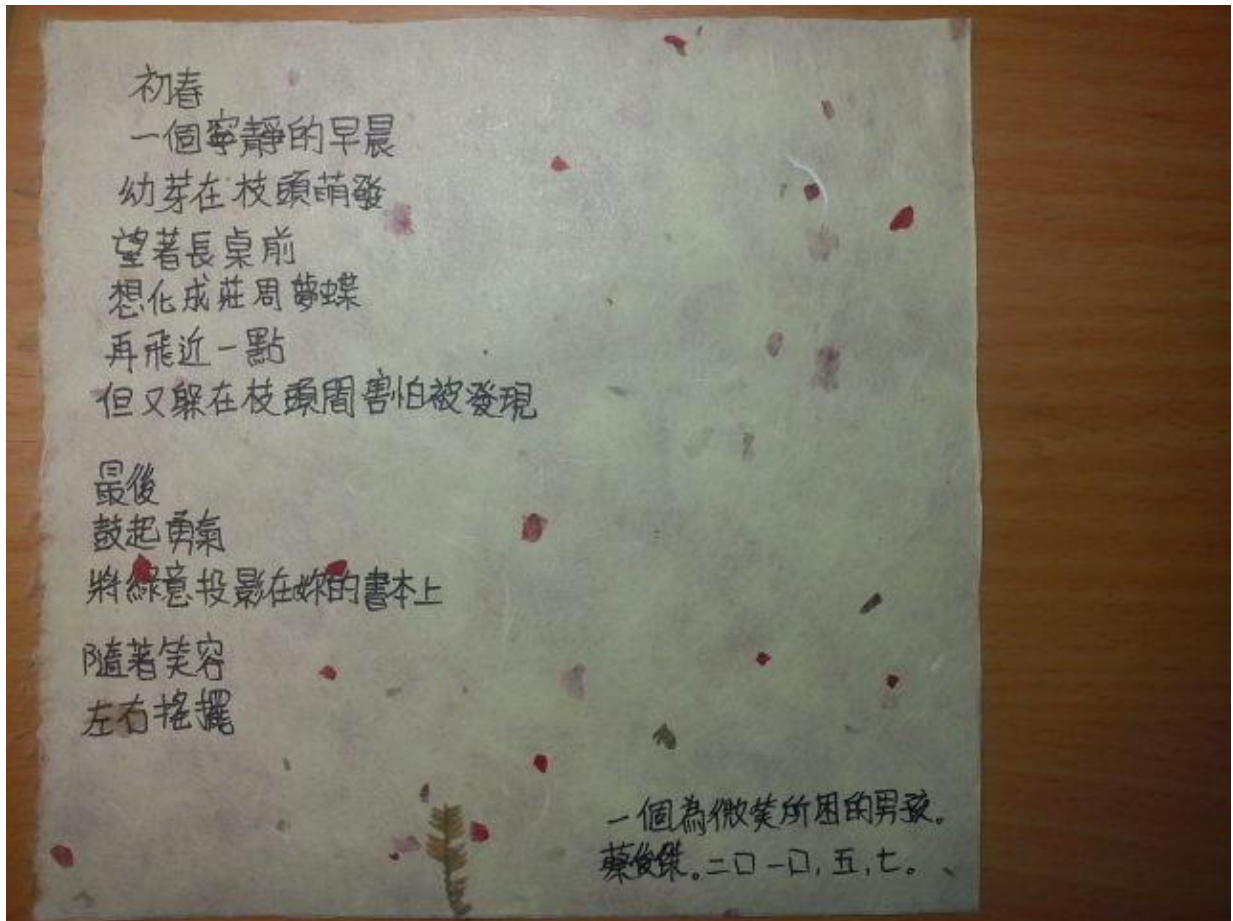 初春
一個寧靜的早晨
幼芽在枝頭萌發
望著長桌前
想化成莊周夢蝶
再飛近一點
但又躲在枝頭間害怕被發現
最後
鼓起勇氣
將綠意投影在妳的書本上
隨著笑容
左右搖擺
一個為微笑所困的男孩。
蔡俊傑。二〇一〇,五,七。